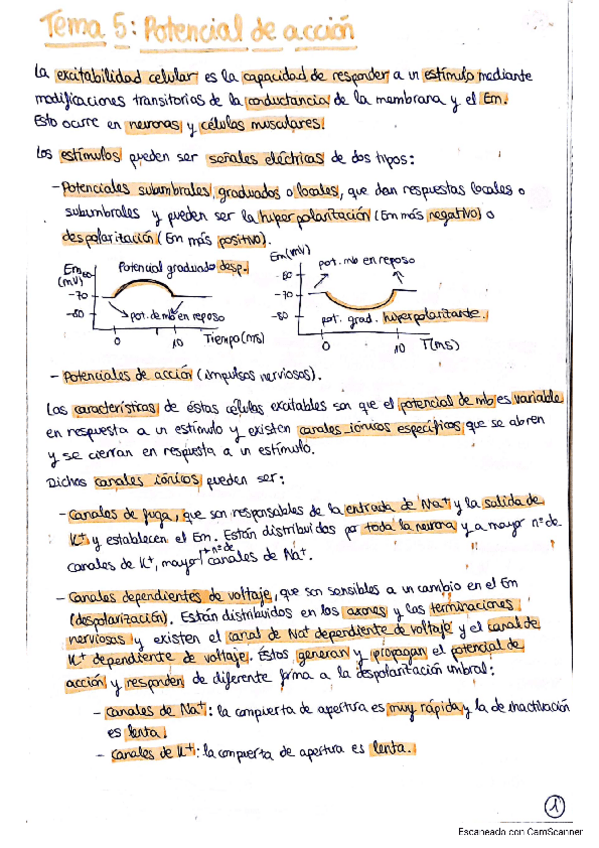 Tema 5: Potencial de acción
La excitabilidad celular es la capacidad de responder a un estímulo mediante
modificaciones transitorias de la conductancia de la membrana y el Em.
Esto ocurre en neuronas y células musculares.
Los estímulos pueden ser señales eléctricas de dos tipos:
- Potenciales subumbrales, graduados o locales, que dan respuestas locales o
subumbrales y pueden ser la hiperpolarización (Em más negativo) o
despolarización (Em más positivo).
Em (mV)
-60
-70
-80
Potencial graduado desp.
pot. de mb en reposo
0
10
Tiempo (ms)
Em (mV)
-60
-70
-80
pot. mb en reposo
pot. grad. hiperpolarizante.
0
10
T (ms)
- Potenciales de acción (impulsos nerviosos).
Las características de éstas células excitables son que el potencial de mb es variable
en respuesta a un estímulo y existen canales iónicos específicos que se abren
y se cierran en respuesta a un estímulo.
Dichos canales iónicos pueden ser:
- Canales de fuga, que son responsables de la entrada de Na+ y la salida de
K+ y establecen el Em. Están distribuidos por toda la neurona y a mayor nº de
canales de K+, mayor nº de canales de Na+.
- Canales dependientes de voltaje, que son sensibles a un cambio en el Em
(despolarización). Están distribuidos en los axones y las terminaciones
nerviosas y existen el canal de Na+ dependiente de voltaje y el canal de
K+ dependiente de voltaje. Éstos generan y propagan el potencial de
acción y responden de diferente forma a la despolarización umbral:
- Canales de Na+: la compuerta de apertura es muy rápida y la de inactivación
es lenta.
- Canales de K+: la compuerta de apertura es lenta.
1
Escaneado con CamScanner